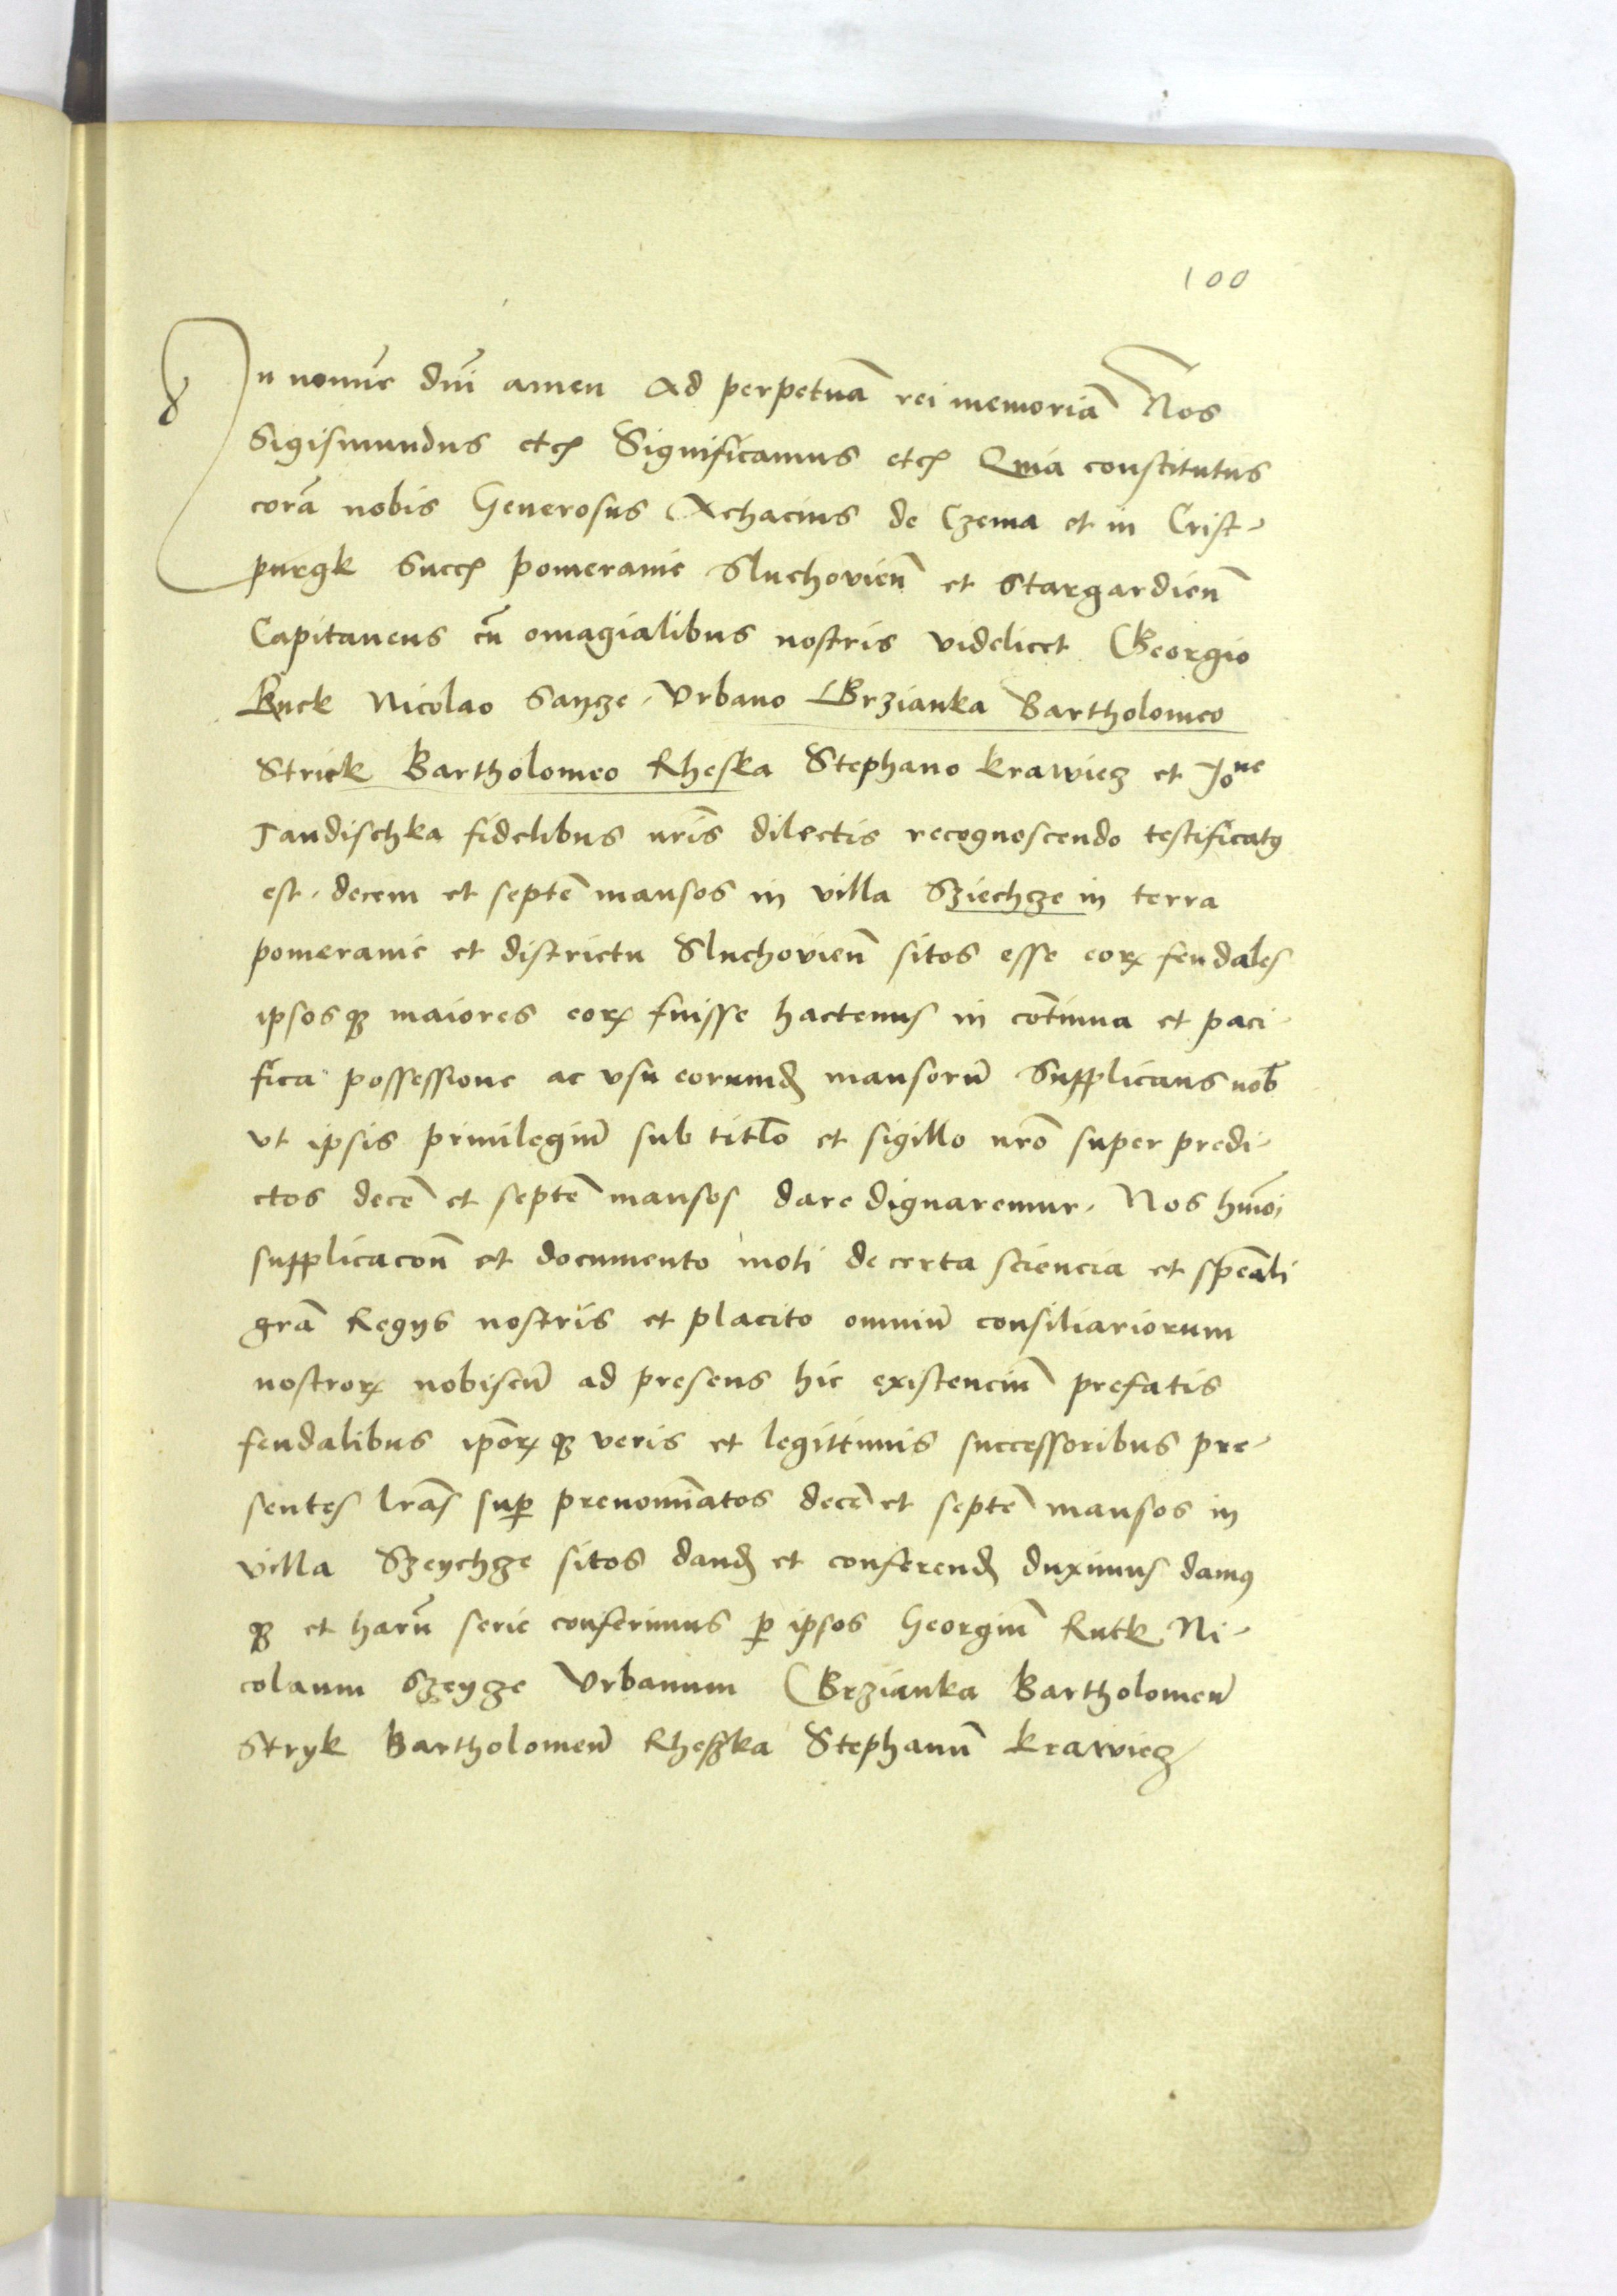 100
In nomīe dnī amen Ad perpetuā rei memoriā Nos
Sigismundus etc̄ Significamus etc̄ Quia constitutus
corā nobis Generosus Achacius de Czema et in Crist-
purgk Succ̄ pomeranie Sluchovien̄ et Stargardien̄
Capitaneus cū omagialibus nostris videlicet Georgio
Ruck Nicolao Sancze Urbano Brzianka Bartholomeo
Strick Bartholomeo Rheska Stephano Krawiecz et Joⁿᵉ
Jandischka fidelibus nrīs dilectis recognoscendo testificatꝰ
est. decem et septē mansos in villa Sziechcze in terra
pomeranie et districtu Sluchovien̄ sitos esse eoꝝ feudales
ipsosqꝫ maiores eoꝝ fuisse hactenus in cōtinua et paci-
fica possessione ac vsu eorumđ mansorū Supplicans nob̄
vt ipsis priuilegiū sub titl̄o et sigillo nr̄o super predi-
ctos decē et septē mansos dare dignaremur. Nos hmōi
supplicacōn̄ et documento moti de certa sciencia et spēali
grā Regijs nostris et placito omniū consiliariorum
nostroꝝ nobiscū ad presens hic existenciū prefatis
feudalibus ip̄oꝝqꝫ veris et legittimis successoribus pre-
sentes lrās suꝑ prenomīatos decē et septē mansos in
villa Szeychze sitos danđ et conferenđ duximus damꝰ
qꝫ et harū serie conferimus ꝑ ipsos Georgiū Rutk Ni-
colaum Szeyze Urbanum Brzianka Bartholomeū
Stryk Bartholomeū Rheszka Stephanū Krawiecz